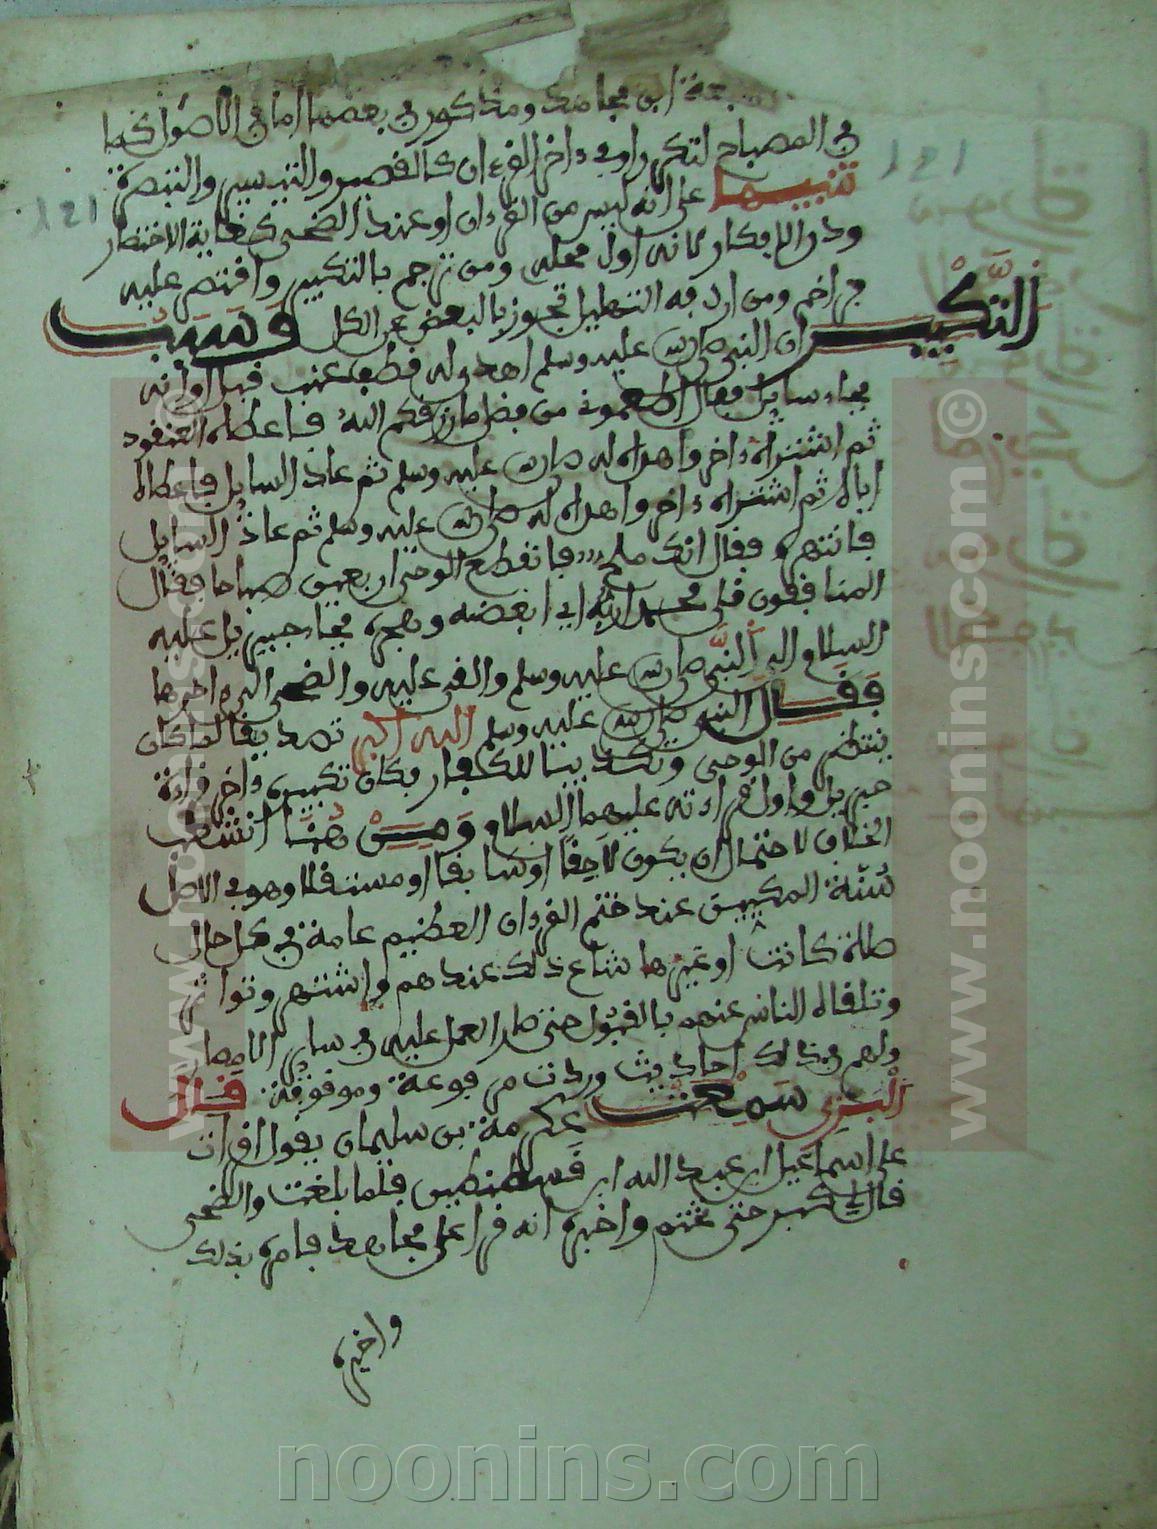 بعد ابن مجاهد ومذكور في بعضها اما في الاصول كما
في المصباح لتكبر راو في داخر القرءان كالقصير والتيسير والتبصرة
تنبيها على انه ليس من القرءان او عند الضحى كغاية الاختصار
وذو الافكار لانه اول محله ومن ترجم بالتكبير وافتصر عليه
ومن اراد به التهليل تجوز بالبعض عن الكل وسبب
التكبير ان النبي صلى الله عليه وسلم اهدي له قطف عنب قبل اوانه
فجاء سايل فقال اطعموني من فضل ما رزقكم الله فاعطاه العنقود
ثم اشتراه داخر واهداه له صلى الله عليه وسلم ثم عاد السايل فاعطاه
اياه ثم اشتراه داخر واهداه له صلى الله عليه وسلم ثم عاد السايل
فانتهره وقال انك ملح فانقطع الوحي اربعين صباحا فقال
المنافقون قلى محمدا ربه اي ابغضه وهجره فجاء جبريل عليه
السلام الى النبي صلى الله عليه وسلم والقى عليه والضحى الى داخرها
فقال النبي صلى الله عليه وسلم الله اكبر تصديقا لما كان
ينتظر من الوحي وتكذيبا للكفار فكان تكبيره داخر قراءة
جبريل واول قراءته عليهما السلام ومن هنا انشعب
الخلاف لاحتمال ان يكون لاحقا او سابقا او مستقلا وهو في الاصل
سنة المكيين عند ختم القرءان العظيم عامة في كل حال
صلاة كانت او غيرها شاع ذلك عندهم واشتهر وتواتر
وتلقاه الناس عنهم بالقبول حتى صار العمل عليه في ساير الامصار
ولهم في ذلك احاديث وردت مرفوعة وموقوفة قال
البزي سمعت عكرمة بن سليمان يقول قرات
على اسماعيل ابن عبد الله ابن قسطنطين فلما بلغت والضحى
قال لي كبر حتى تختم واخبره انه قرا على مجاهد فامره بذلك
واخبره
121
121
www.noonins.com ©
www.noonins.com
noonins.com